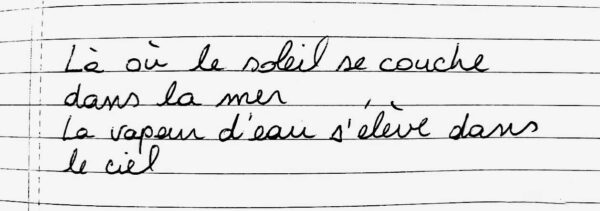 Là où le soleil se couche
dans la mer
La vapeur d'eau s'élève dans
le ciel